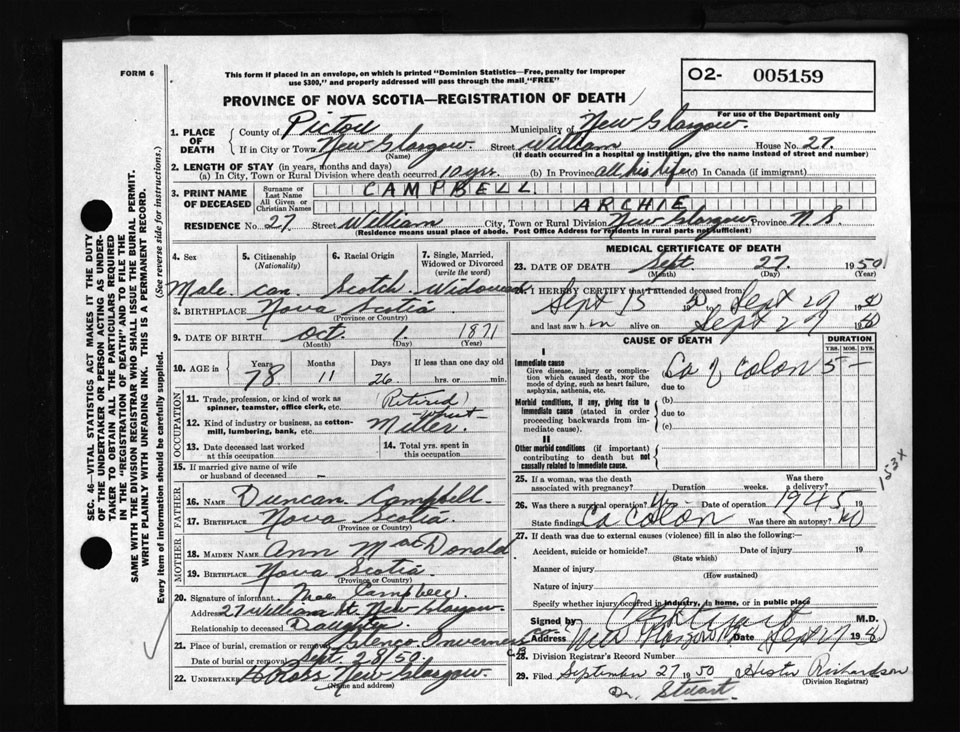 FORM 6
This form if placed in an envelope, on which is printed "Dominion Statistics—Free, penalty for improper
use $300," and properly addressed will pass through the mail "FREE"
O2- 005159
For use of the Department only
PROVINCE OF NOVA SCOTIA—REGISTRATION OF DEATH
1. PLACE OF DEATH
County of Pictou Municipality of New Glasgow.
If in City or Town New Glasgow. (Name) Street William House No. 27.
(If death occurred in a hospital or institution, give the name instead of street and number)
2. LENGTH OF STAY (in years, months and days)
(a) In City, Town or Rural Division where death occurred 10 yrs. (b) In Province all his life (c) In Canada (if immigrant)
3. PRINT NAME OF DECEASED
Surname or Last Name CAMPBELL
All Given or Christian Names ARCHIE
RESIDENCE No. 27 Street William City, Town or Rural Division New Glasgow Province N.S.
(Residence means usual place of abode. Post Office Address for residents in rural parts not sufficient)
4. Sex Male.
5. Citizenship (Nationality) can.
6. Racial Origin Scotch
7. Single, Married, Widowed or Divorced (write the word) Widowed
8. BIRTHPLACE Nova Scotia
(Province or Country)
9. DATE OF BIRTH Oct. 1. 1871
(Month) (Day) (Year)
10. AGE in Years 78 Months 11 Days 26. If less than one day old hrs. or min.
OCCUPATION
11. Trade, profession, or kind of work as spinner, teamster, office clerk, etc. (Retired)
12. Kind of industry or business, as cotton-mill, lumbering, bank, etc. Miller.
13. Date deceased last worked at this occupation
14. Total yrs. spent in this occupation
15. If married give name of wife or husband of deceased —
FATHER
16. NAME Duncan Campbell.
17. BIRTHPLACE Nova Scotia.
(Province or Country)
MOTHER
18. MAIDEN NAME Ann MacDonald
19. BIRTHPLACE Nova Scotia.
(Province or Country)
20. Signature of informant Mae Campbell
Address 27 William St. New Glasgow.
Relationship to deceased Daughter
21. Place of burial, cremation or removal Glenco Inverness C.B.
Date of burial or removal Sept. 28/50.
22. UNDERTAKER New Glasgow.
(Name and address)
MEDICAL CERTIFICATE OF DEATH
23. DATE OF DEATH Sept. 27. 1950
(Month) (Day) (Year)
24. I HEREBY CERTIFY that I attended deceased from
Sept 15 1950 to Sept 27 1950
and last saw him alive on Sept 27 1950
CAUSE OF DEATH
DURATION
YRS. MOS. DYS.
I
Immediate cause
Give disease, injury or complication which caused death, not the mode of dying, such as heart failure, asphyxia, asthenia, etc.
Ca of Colon 5 —
due to
Morbid conditions, if any, giving rise to immediate cause (stated in order proceeding backwards from immediate cause).
(b)
due to
(c)
II
Other morbid conditions (if important) contributing to death but not causally related to immediate cause.
153X
25. If a woman, was the death associated with pregnancy? Duration weeks. Was there a delivery?
26. Was there a surgical operation? Date of operation 1945 19
State findings Ca Colon Was there an autopsy? No
27. If death was due to external causes (violence) fill in also the following:—
Accident, suicide or homicide? Date of injury 19
(State which)
Manner of injury
(How sustained)
Nature of injury
Specify whether injury occurred in industry, in home, or in public place
Signed by M.D.
Address New Glasgow Date Sept 27 1950
28. Division Registrar's Record Number
29. Filed September 27 1950 Hester Richardson
(Division Registrar)
Dr. Stuart.
SEC. 46—VITAL STATISTICS ACT MAKES IT THE DUTY
OF THE UNDERTAKER OR PERSON ACTING AS UNDER-
TAKER TO OBTAIN ALL THE PARTICULARS REQUIRED
IN THE "REGISTRATION OF DEATH" AND TO FILE THE
SAME WITH THE DIVISION REGISTRAR WHO SHALL ISSUE THE BURIAL PERMIT.
WRITE PLAINLY WITH UNFADING INK. THIS IS A PERMANENT RECORD.
Every item of information should be carefully supplied. (See reverse side for instructions.)